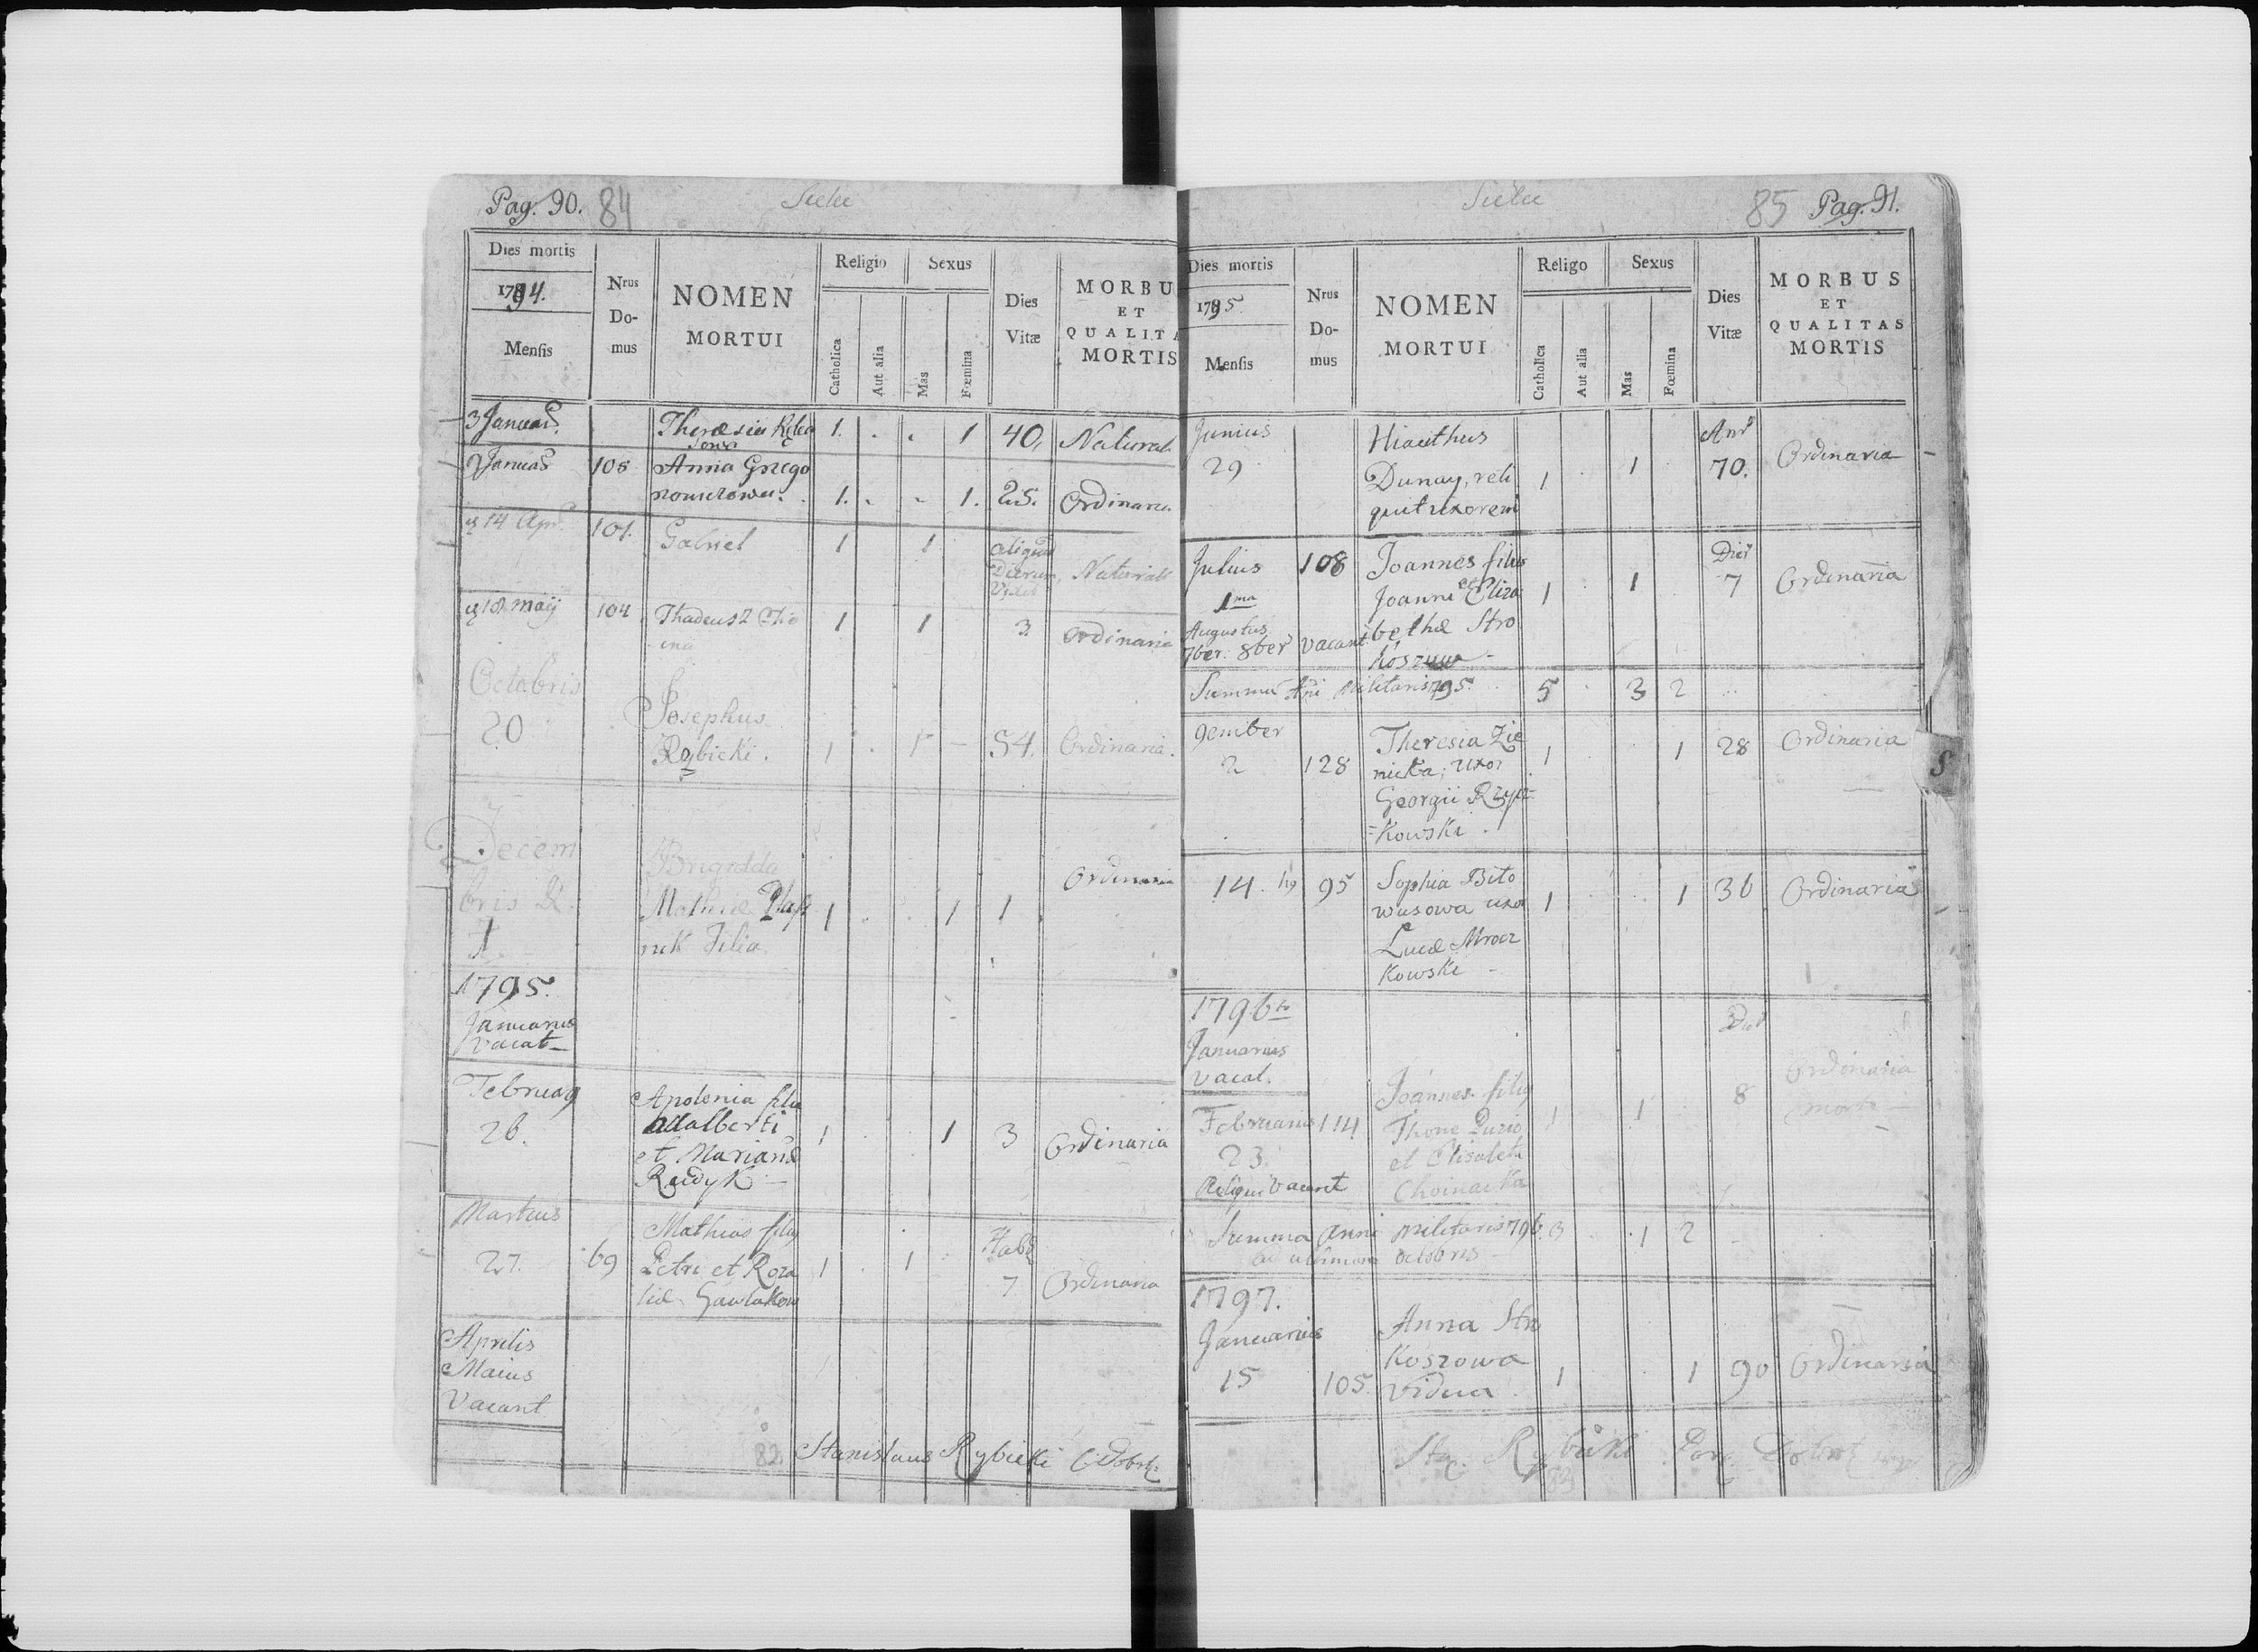 Pag. 90. 84
Dies mortis
1794.
Mensis
Nrus
Do-
mus
NOMEN
MORTUI
Religio
Catholica
Aut alia
Sexus
Mas
Fœmina
Dies
Vitæ
MORBU
ET
QUALITA
MORTIS
3 Januar. Theresia 1. . . 1 40, Natural
Januar 105 Anna Grzego
1. . . 1. 25. Ordinaria
14 Apr. 101. Gabriel 1 1 aliquot
Dierum Natural
18 Maij 104 Thadeusz 1 1 3 Ordinaria
Octobris
20 Josephus
Rybicki. 1 . 1 - 54. Ordinaria.
Decem
bris Brigidda Ordinaria
1 Mathiæ 1 . . 1 1
nik Filia.
1795.
Januarius
vacat
Februarÿ Apolonia filia
26. Adalberti 1 . . 1 3 Ordinaria
et Mariannæ
Rudyk
Martius Mathias filiꝯ
27. 69 Petri et Roza 1 . 1 7 Ordinaria
liæ Gawlakow
Aprilis
Maius
Vacant
82. Stanislaus Rybicki
85 Pag. 91.
Dies mortis
1795
Mensis
Nrus
Do-
mus
NOMEN
MORTUI
Religo
Catholica
Aut alia
Sexus
Mas
Fœmina
Dies
Vitæ
MORBUS
ET
QUALITAS
MORTIS
Junius Hiacithus Anr
29 Dunay, reli 1 . 1 70. Ordinaria
quit uxorem
Julius 108 Joannes filius Dier
1ma Joanni et Eliza 1 . 1 7 Ordinaria
Augustus
7ber. 8ber vacant. bethæ Stro
Summa Ani Militaris 795. 5 . 3 2
9ember Theresia Zie
2 128 nicka, uxor 1 . . 1 28 Ordinaria
Georgii Rzycz
=kowski.
14. 95 Sophia Bito
wusowa uxor 1 . . 1 36 Ordinaria
Lucæ Mrocz
kowski -
1796to
Januarius
vacat. Joannes filiꝯ Ordinaria
Februarius 114 Thome 1 . 1 8
23. et Elisabeth
Reliqui vacant Choinacka
Summa Anni Militaris 796. 3 . 1 2
ad ultimam octobris
1797.
Januarius Anna Stro
koszowa
15 105. Vidua. 1 . . 1 90 Ordinaria
Rybicki